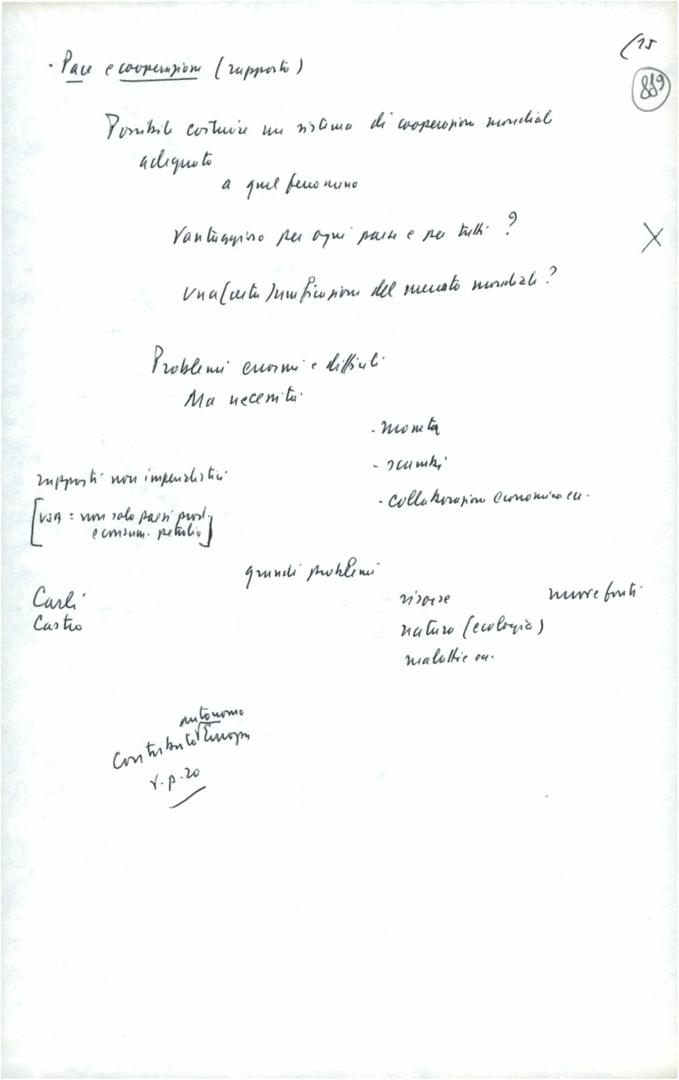 (15
889
· Pace e cooperazione (rapporto)
Possibile costruire un sistema di cooperazione mondiale
adeguato
a quel fenomeno
Vantaggioso per ogni paese e per tutti ?
Una (certa) unificazione del mercato mondiale ?
X
Problemi enormi e difficili
Ma necessità
- moneta
- scambi
- collaborazione economica ecc.
rapporti non imperialistici
[USA = non solo paesi prod.
e consum. petrolio]
grandi problemi
Carli
Castro
risorse
nuove fonti
natura (ecologia)
malattie ecc.
autonomo
Contributo Europa
v. p. 20